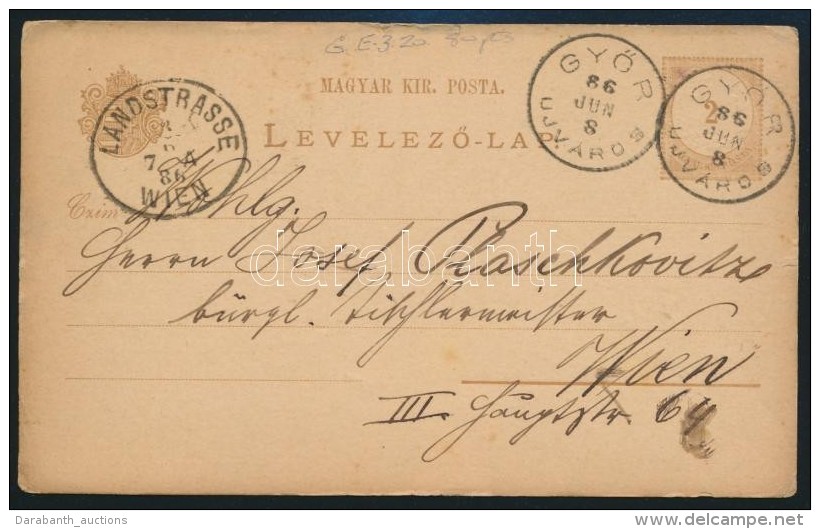 G. E. 3. 20
MAGYAR KIR. POSTA.
LEVELEZŐ-LAP.
GYŐR
86
JUN
8
UJVÁROS
GYŐR
86
JUN
8
UJVÁROS
2
LANDSTRASSE
8
6
7 A
86
WIEN
Czim
Wohlg.
Herrn Josef Raschkovitz
bürgl. Tischlermeister
Wien
III. Hauptstr. 64
databanth
Darabanth_auctions
www.delcampe.net